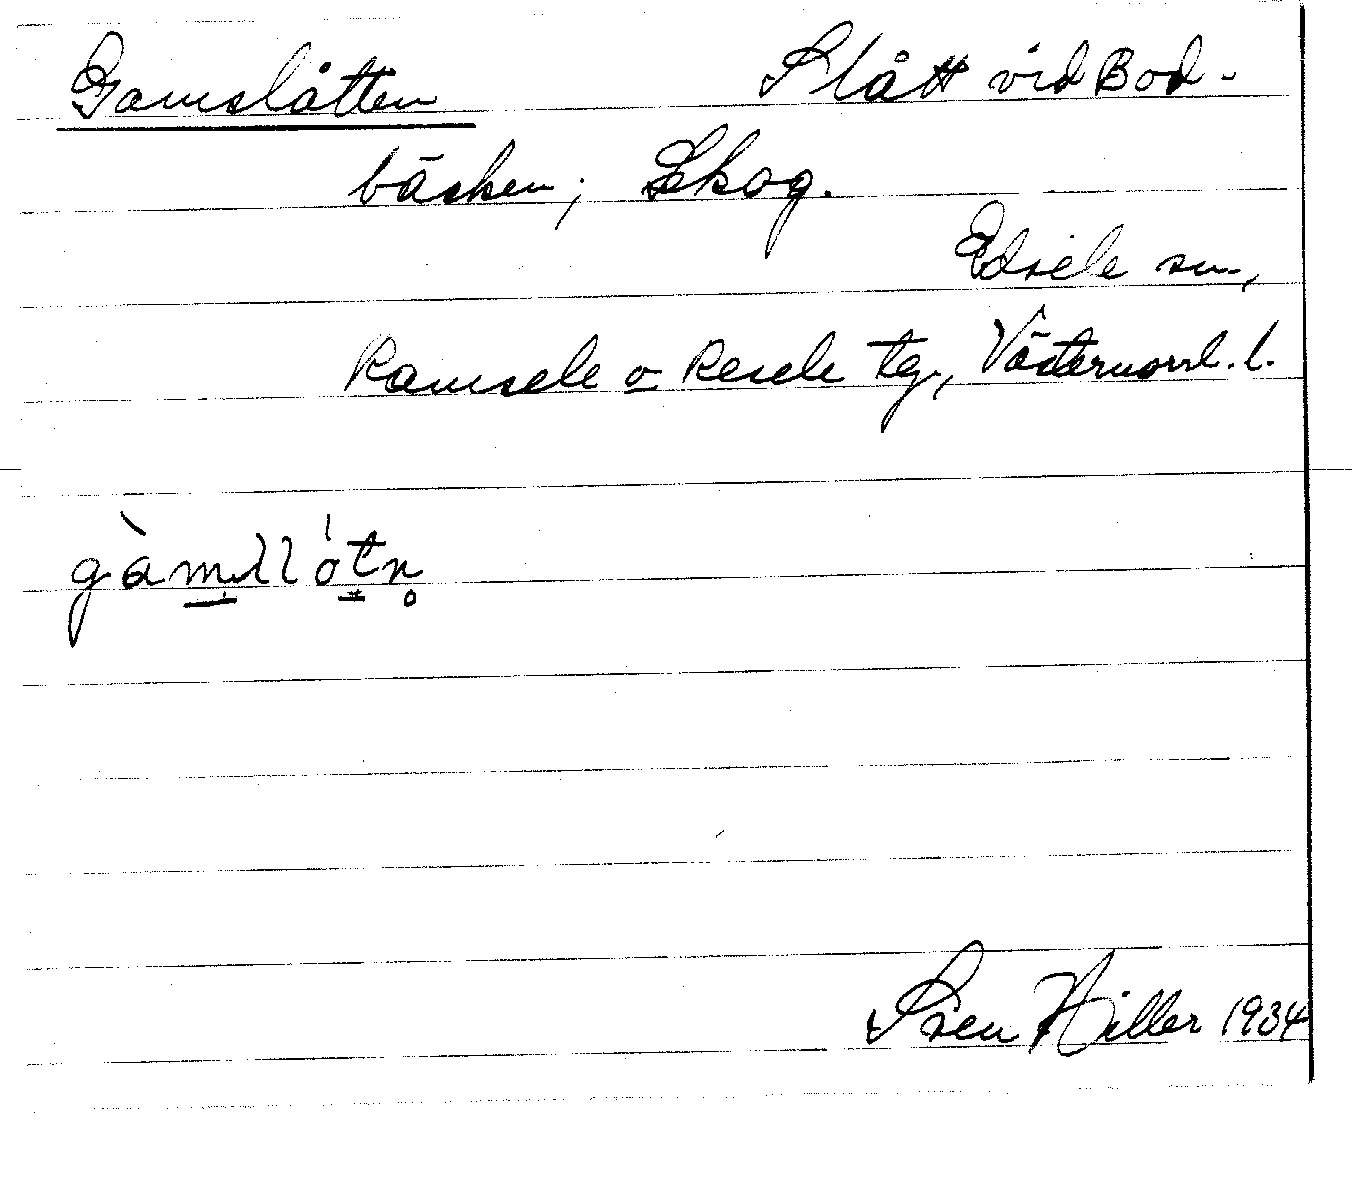 Gamslåtten Slått vid Bod-
bäcken; Skog.
Edsele sn.,
Ramsele o Resele tg., Västernorrl. l.
gàmslłótn̥
Sven Hiller 1934